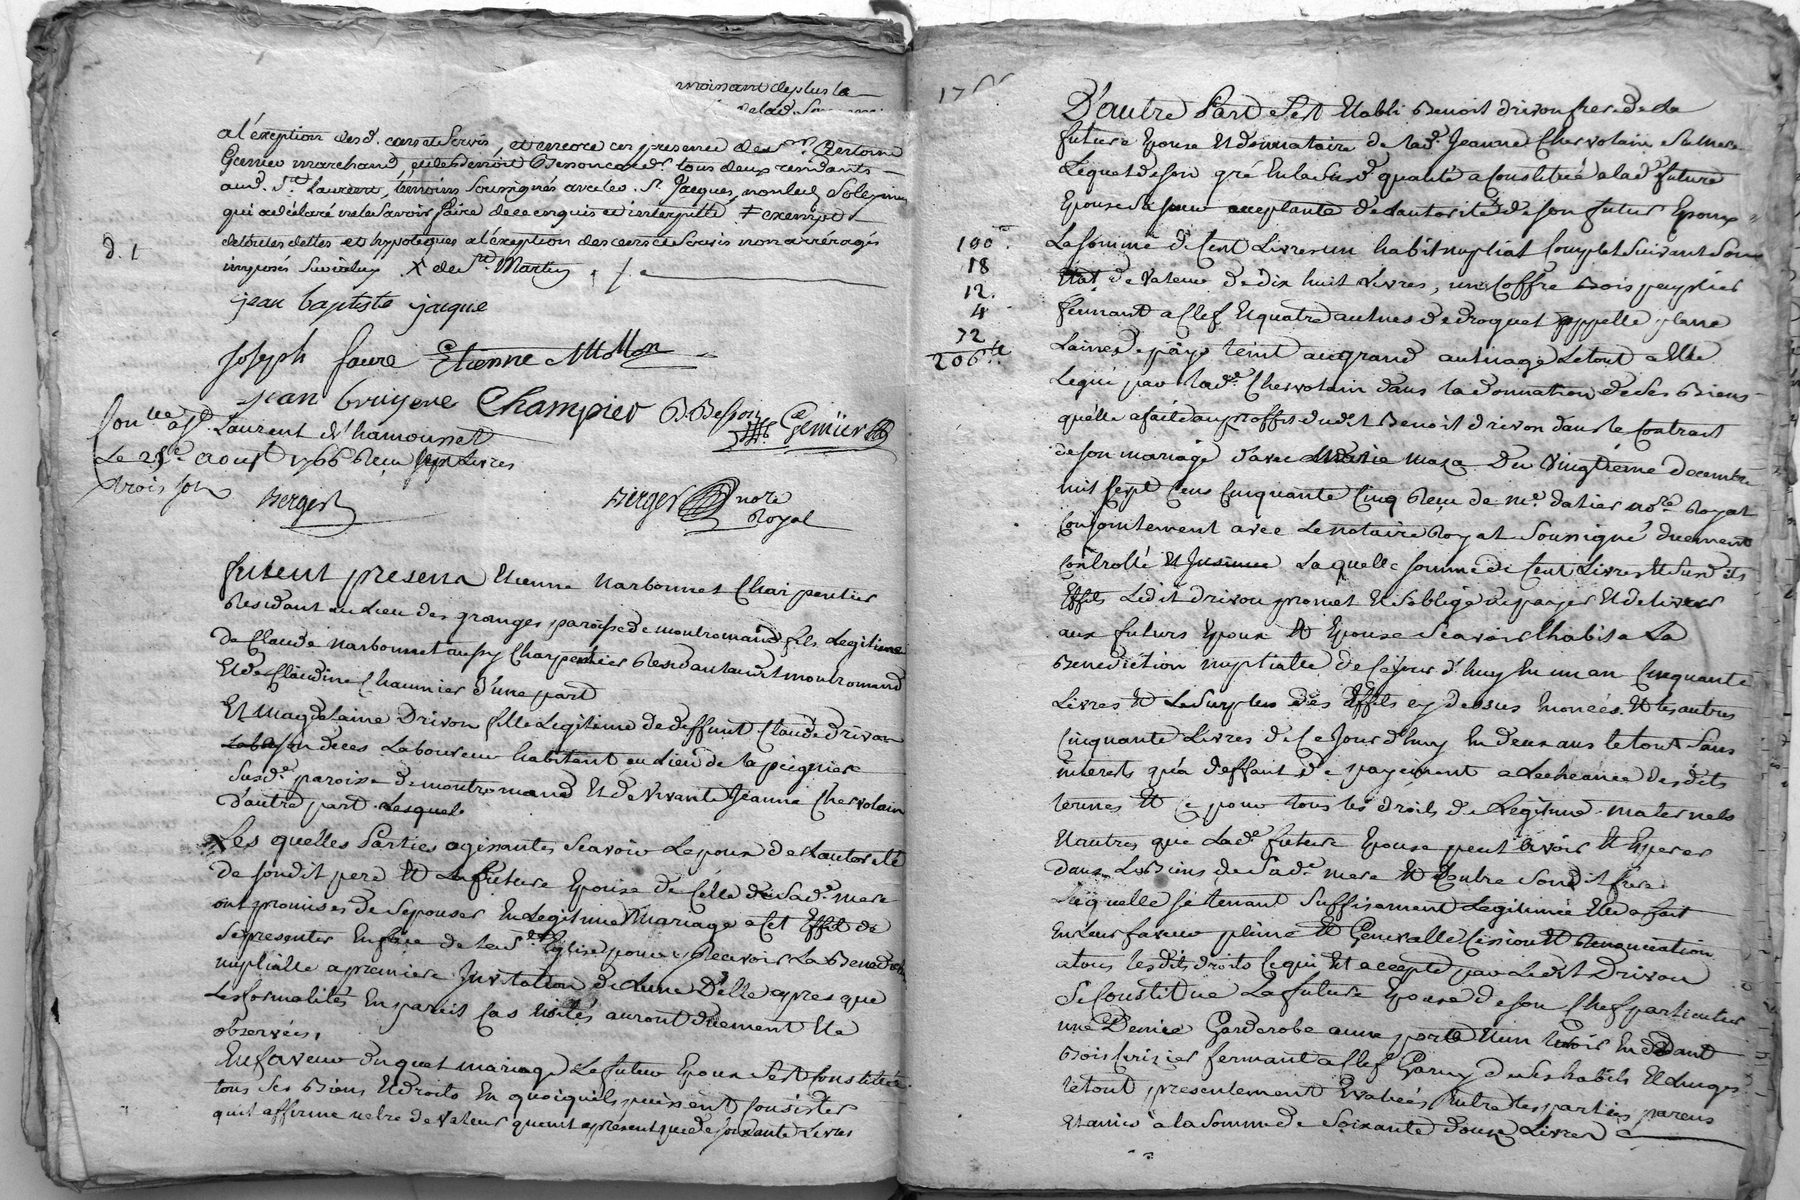 moissant deplus la
a l'éxeption desd. cens et servis, et encore en presence des Srs Antoine
Grenier marchand, et de Benoit Besson tous deux residants
aud. St Laurent, témoins soussignés avec led. Sr Jacques, non led. Soleymieu
qui a déclaré ne le savoir faire de ce enquis et interpellé + exempt
de toutes dettes et hypoteques a l'éxeption des cens et servis non arréragés
imposés sur iceluy X de St Martin
d. l
jean baptiste jacque
joseph faure Etienne Mollon
jean bruyere Champier B. Besson Grenier
Conlle a St Laurent de Chamousset
Le 28e aoust 1766 Reçu sept Livres
trois sols
Berger Berger notre
Royal
furent presens Etienne Narbonnet Charpentier
Residant au Lieu des granges paroisse de montromand fils Legitime
de Claude Narbonnet aussy Charpentier Residant audit montromand
Et de Claudine Chaunier d'une part
Et Magdelaine Drivon fille Legitime de deffunt Claude drivon
son deces Laboureur habitant au Lieu de la
susde paroisse de montromand Et de Vivante Jeanne Chervolain
d'autre part Lesquels
Les quelles Parties agissantes Scavoir Lepoux de Lautorité
de sondit pere Et La future Epouse de Celle de Sade mere
ont promis de Sepouser En Legitime Mariage a Cet Effet de
se presenter En face de leur ste Eglise pour y Recevoir La Benediction
nuptialle a premiere Invitation de Lune D'elle apres que
Les formalités En pareil Cas usités auront düement Eté
observées,
En faveur duquel mariage Le futur Epoux Sest Constitué
tous Ses Biens Et droits En quoiquils puissent Consister
quil affirme netre de Valeur quant apresent que de soixante Livres
D'autre Part Sest Etabli Benoit drivon frere de La
future Epouse Et donnataire de Lade Jeanne Chervolain Sa mere
Lequel de son gré En la Susde qualité a Constitué a lade future
Epouse sa soeur acceptante de Lautorité de son futur Epoux
100 La somme de Cent Livres un habit nuptial Complet Suivant Son
18 Etat de valeur de dix huit Livres, un Coffre Bois peuplier
12. fermant a Clef Et quatre autnes de droguet appellé plane
4
72
206 Laine de païs teint au grand autuage Letout a Elle
Legué par lade Chervolain dans la donnation de Ses Biens
quelle a faite au proffit dudit Benoit drivon dans le Contrait
de son mariage d'avec Marie Maza Du Vingtieme decembre
mil Sept Cens Cinquante Cinq Reçu de me datier nore Royal
Conjointement avec Le notaire Royal Soussigné düement
Controllé Et Insinué Laquelle somme de Cent Livres Et Susdits
Effets Ledit drivon promet Et Soblige de payer Et delivrer
aux futurs Epoux Et Epouse Scavoir Lhabit a La
Benediction nuptialle de Ce jour d'huy En un an Cinquante
Livres Et Le Surplus des Effets cy dessus Enoncés Et les autres
Cinquante Livres de Ce Jourdhuy En deux ans le tout Sans
interets qu'a deffaut de payement a Lecheance desdits
termes Et Ce pour tous les droits de Legitime maternels
Et autres que Lade future Epouse peut avoir Et Esperer
dans Les Biens de Sade mere Et Contre Sondit frere
Laquelle se tenant Suffisament Legitimée Elle a fait
En Leur faveur pleine Et Generalle Cession Et Renonciation
a tous lesdits droits Cequi Est accepté par Ledit Drivon
Se Constitue La future Epouse de Son Chef particulier
une Demie Garderobe a une porte Et un tiroir En dedant
Bois Cerizier fermant a Clef Garny de Ses habits Et Linges
Le tout presentement Evalués Entre les parties parens
Et amis à la Somme de Soixante douze Livres